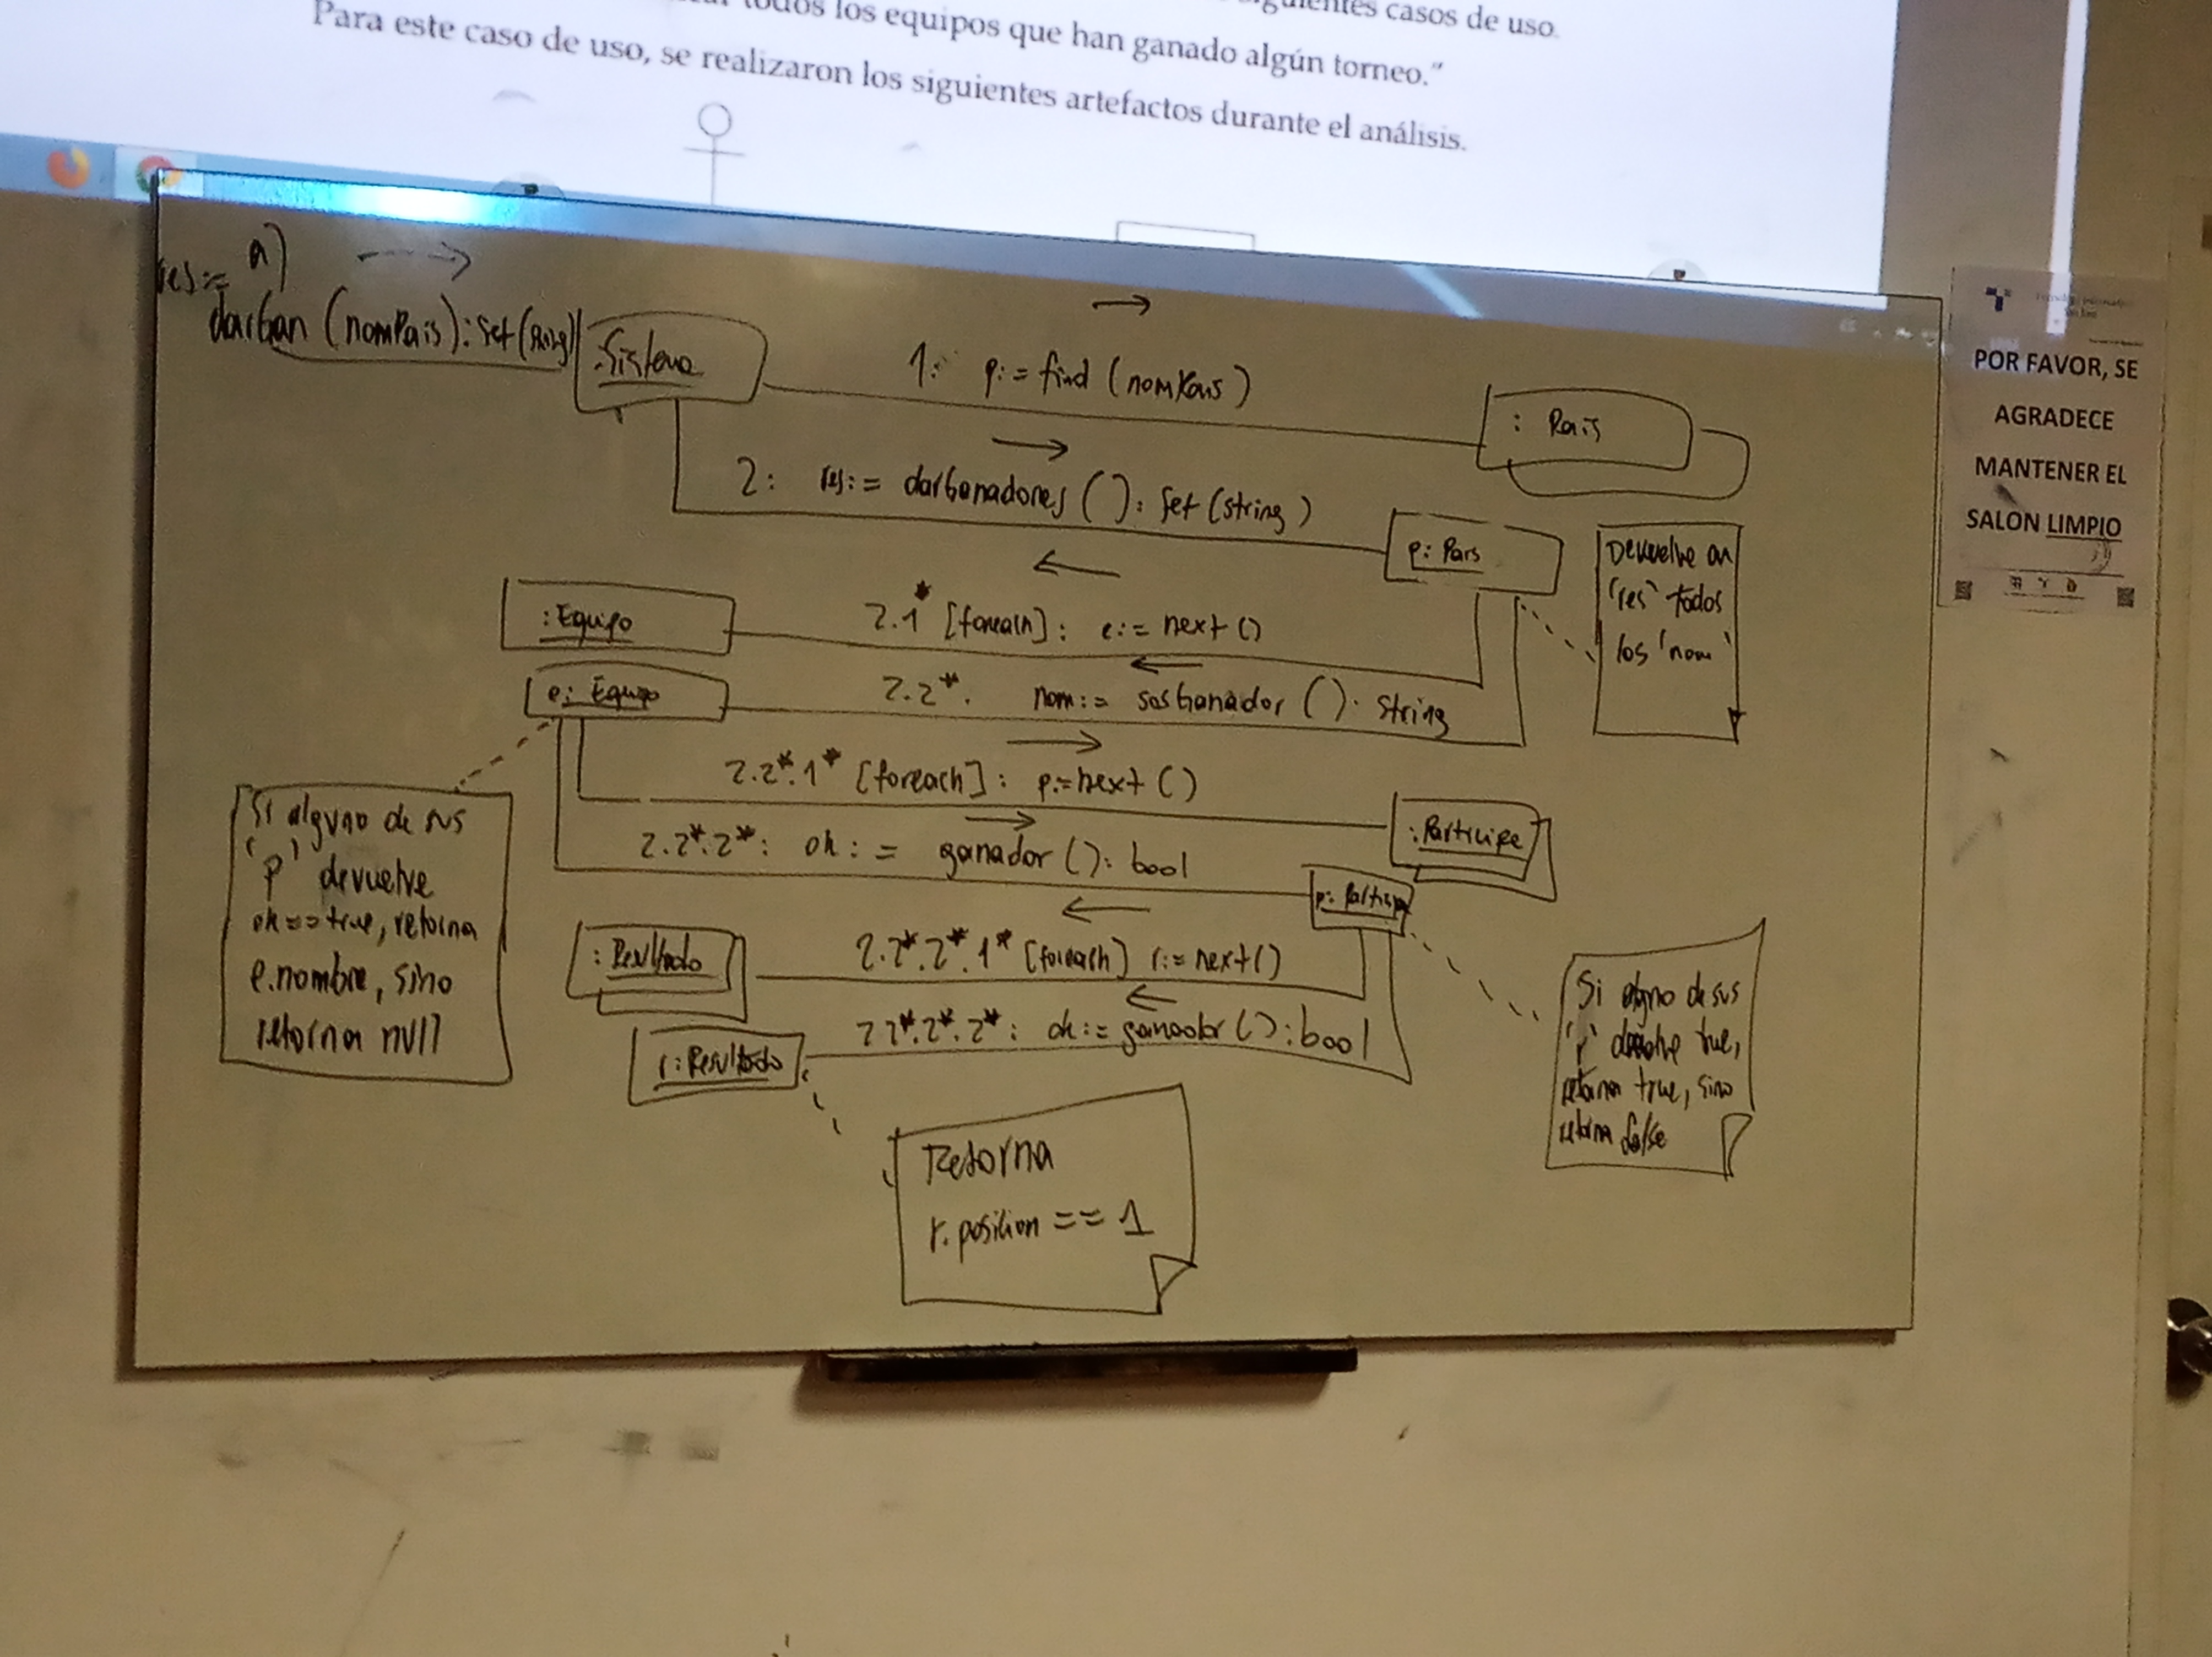 todos los equipos que han ganado algún torneo."
siguientes casos de uso.
Para este caso de uso, se realizaron los siguientes artefactos durante el análisis.
a)
res:=
darGan (nomPais): Set(String)
:Sistema
1: p:= find (nomPais)
: Pais
2: res:= darGanadores ( ): Set (string)
p: Pais
Devuelve en
'res' todos
los 'nom'
:Equipo
2.1* [foreach]: e:= next ()
e: Equipo
2.2*. nom:= sosGanador (): String
2.2*.1* [foreach]: p:=next ()
:Participa
2.2*.2*: ok := ganador (): bool
p: Particip
Si alguno de sus
'p' devuelve
ok==true, retorna
e.nombre, sino
retorna null
:Resultado
2.2*.2*.1* [foreach] r:= next()
r:Resultado
2.2*.2*.2*: ok:= ganador (): bool
Si alguno de sus
'r' devuelve true,
retorna true, sino
retorna false
Retorna
r.posicion == 1
POR FAVOR, SE
AGRADECE
MANTENER EL
SALON LIMPIO